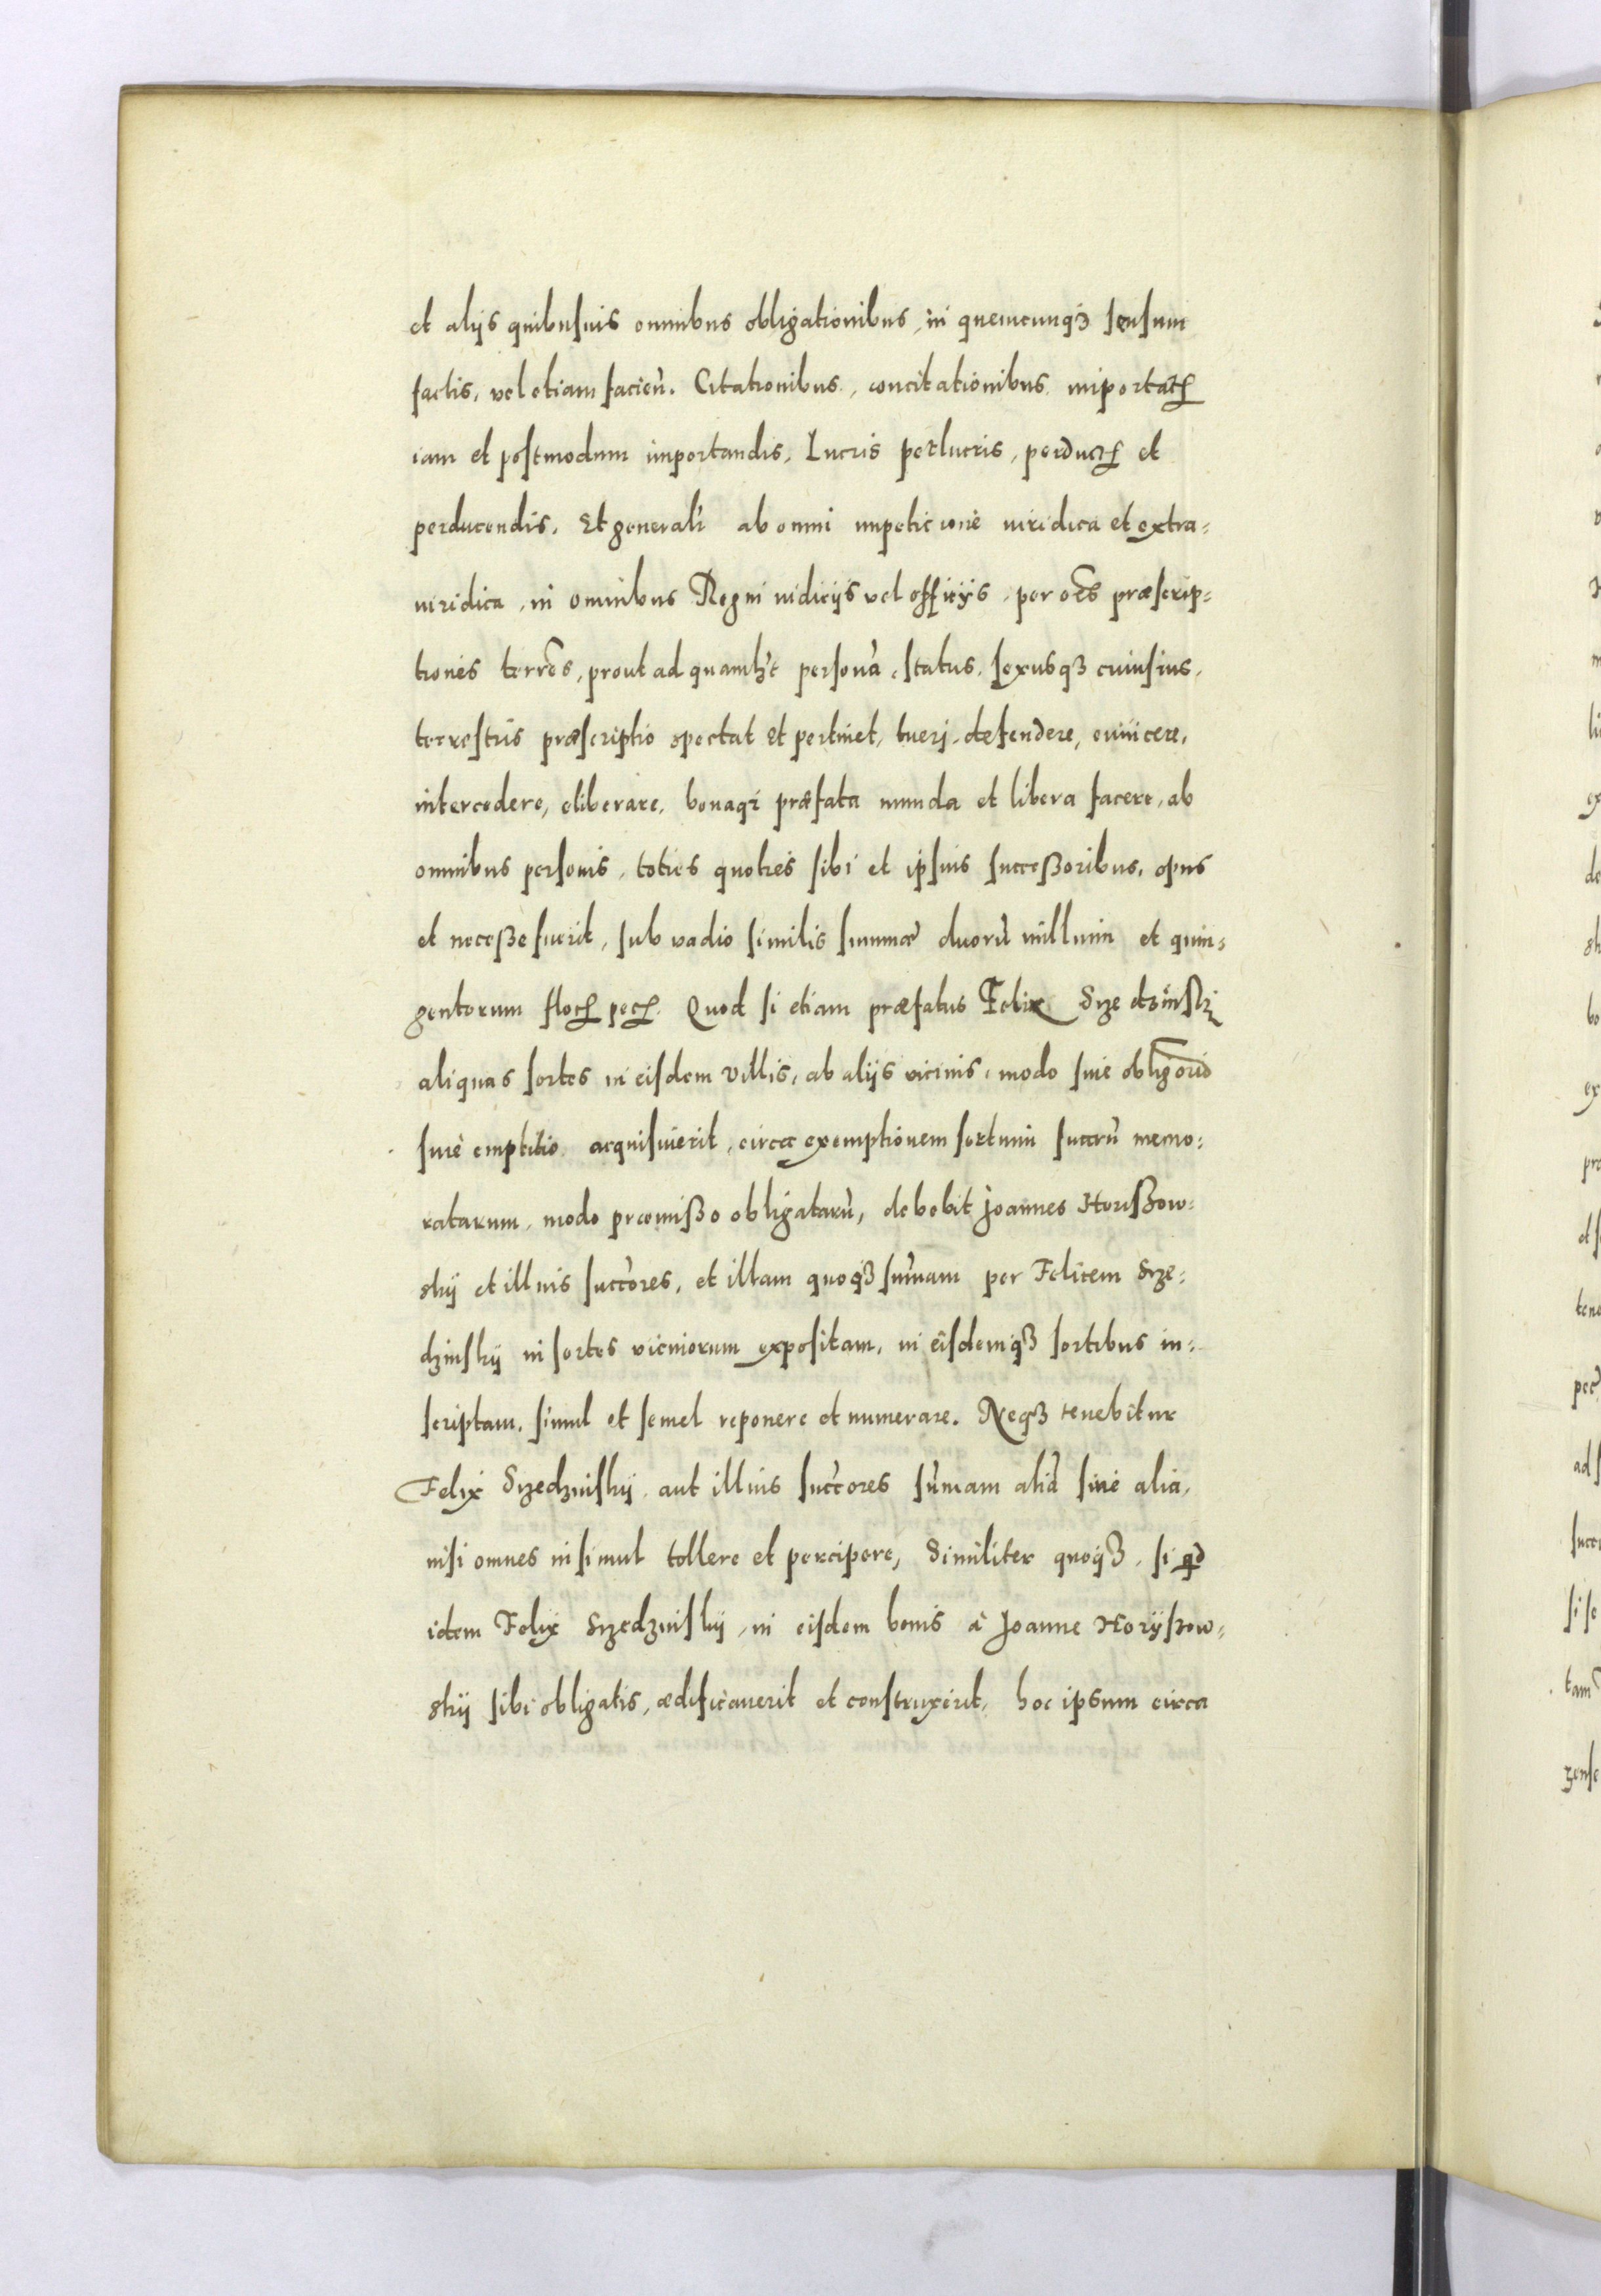 et alijs quibusuis omnibus obligationibus, in quemcunqꝫ sensum
factis, vel etiam facien̄. Citationibus, concitationibus importatꝭ
iam et postmodum importandis, Lucris perlucris, perductꝭ et
perducendis. Et generalr̄ ab omni impeticione iuridica et extra=
iuridica, in omnibus Regni iudicijs vel officijs, per oēs præscrip=
tiones terrēs, prout ad quamlꝫt personā, status, sexusqꝫ cuiusius,
terrestris præscriptio spectat Et pertinet, tueri, defendere, euincere,
intercedere, eliberare, bonaqꝫ præfata munda et libera facere, ab
omnibus personis, toties quoties sibi et ipsius succeßoribus, opus
et neceße fuerit, sub vadio similis summæ duorū millium et quin=
gentorum flocꝭ pecꝭ. Quod si etiam præfatus Felix Szedzinski
aliquas sortes in eisdem Villis, ab alijs vicinis, modo siue obligōrio
siue emptitio acquisiuerit, circa exemptionem sortium suarū memo=
ratarum, modo præmißo obligatarū, debebit Joannes Horißow=
skij et illius succōres, et illam quoqꝫ sum̄am per Felicem Sze=
dzinskij in sortes vicinorum expositam, in eisdemqꝫ sortibus in=
scriptam, simul et semel reponere et numerare. Neqꝫ tenebitur
Felix Szedzinskij aut illius succōres sum̄am aliā sine alia,
nisi omnes insimul tollere et percipere, Similiter quoqꝫ, si qd
idem Felix Szedzinskij, in eisdem bonis à Joanne Horÿszow=
skij sibi obligatis, ædificauerit et construxerit, hoc ipsum circa